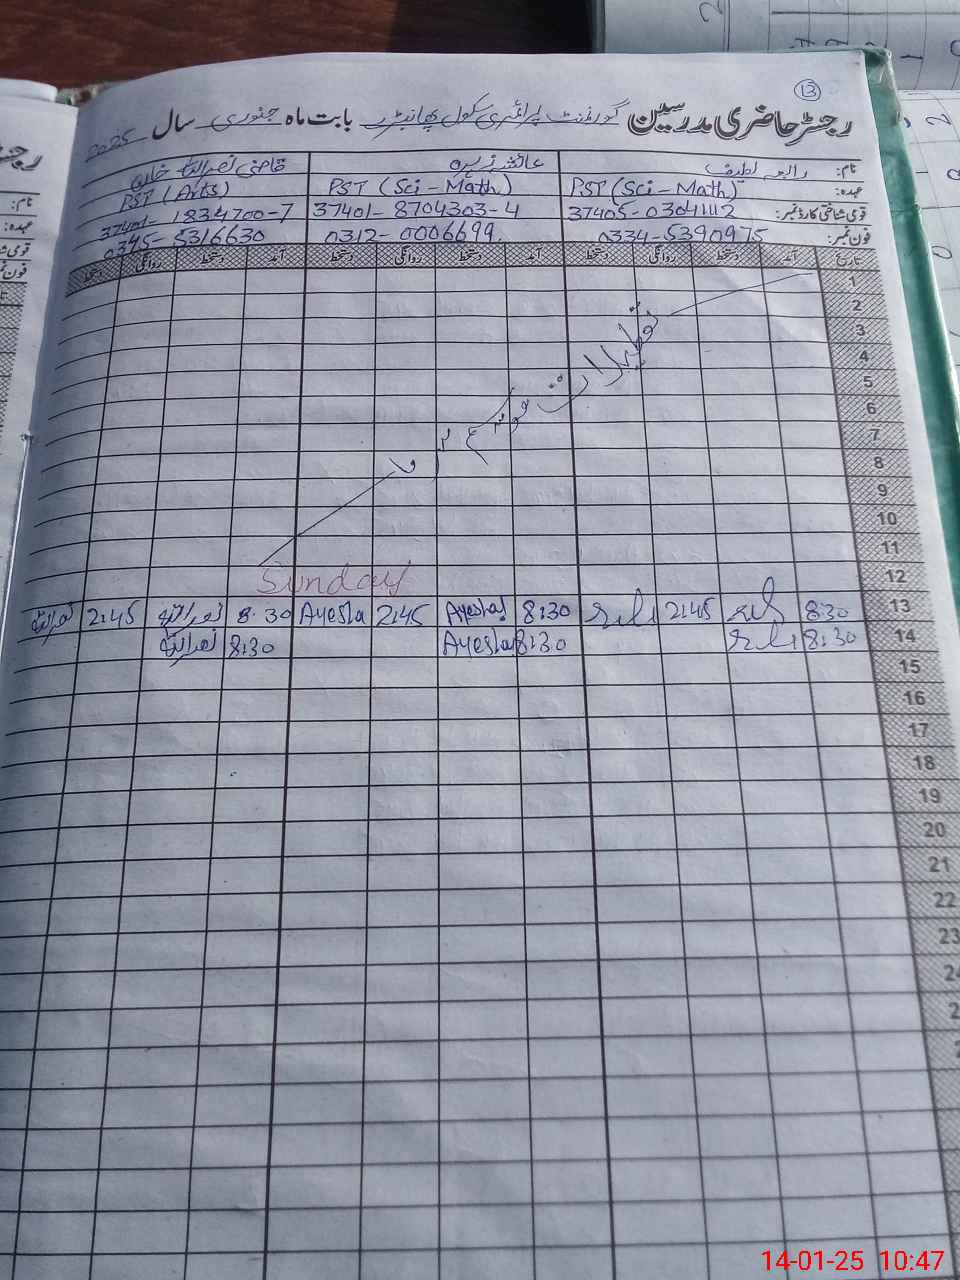 13
رجسٹر حاضری مدرسین گورنمنٹ پرائمری سکول بابت ماہ جنوری سال 2025
نام: رابعہ لطیف عائشہ زہرہ قاضی نصراللہ خان
عہدہ: PST (Sci-Math) PST (Sci-Math) PST (Arts)
قومی شناختی کارڈ نمبر: 37405-0304112 37401-8704303-4 37401-1834700-7
فون نمبر: 0334-5390975 0312-0006699 0345-5316630
تاریخ آمد دستخط روانگی دستخط آمد دستخط روانگی دستخط آمد دستخط روانگی دستخط
1
2
3
4
5
6
7
8
9
10
11
تعطیلات موسم سرما
12 Sunday
13 8:30 رابعہ 2:45 رابعہ 8:30 Ayesha 2:45 Ayesha 8:30 نصراللہ 2:45 نصراللہ
14 8:30 رابعہ 8:30 Ayesha 8:30 نصراللہ
15
16
17
18
19
20
21
22
23
24
14-01-25 10:47